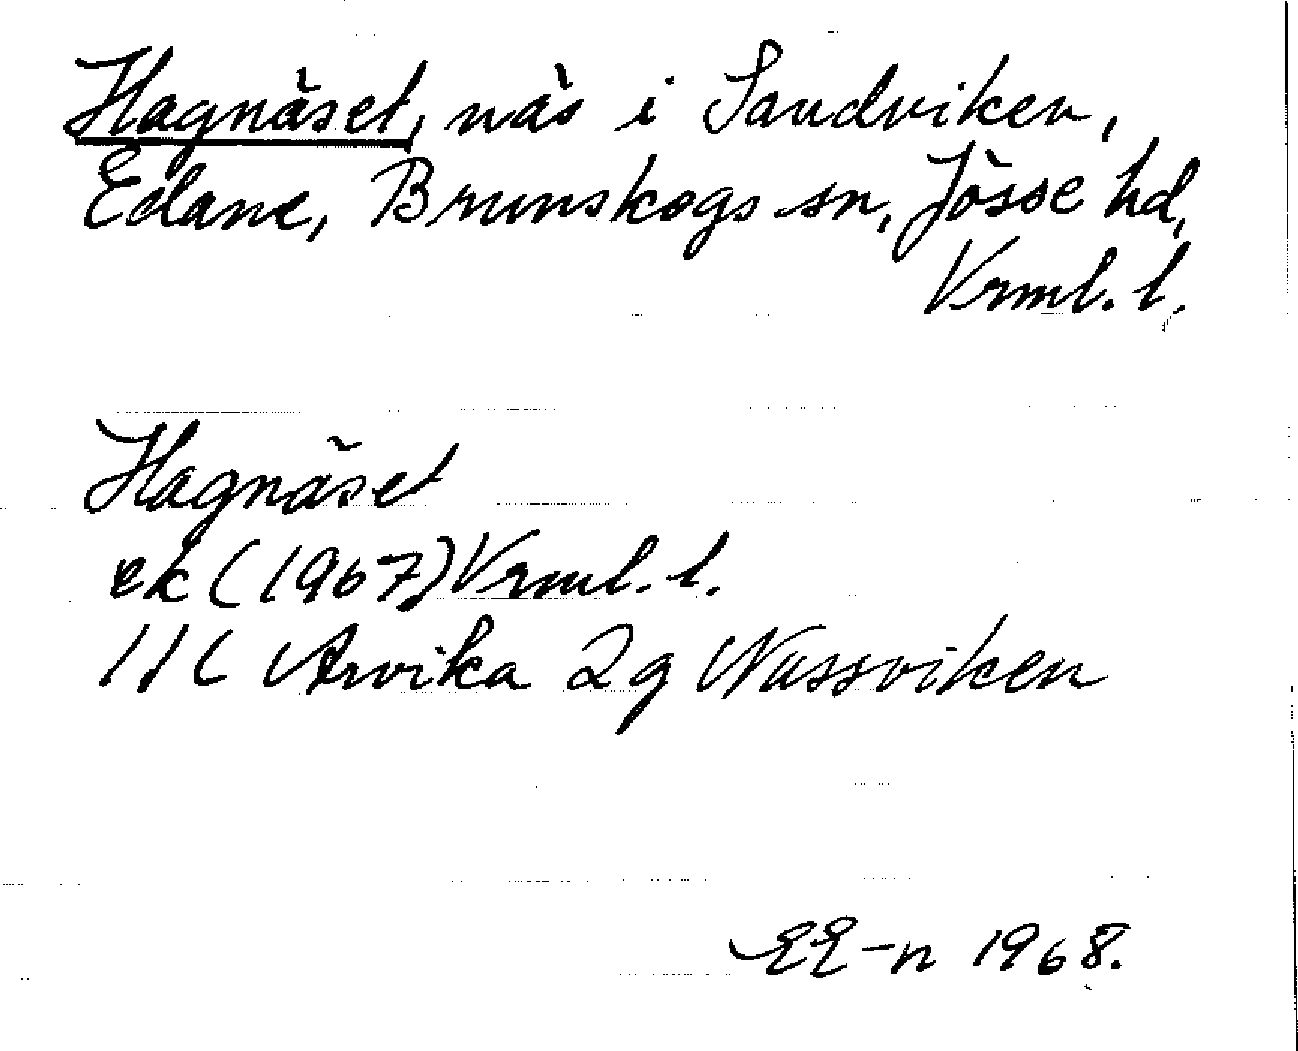 Hagnäset, näs i Sandviken,
Edane, Brunskogs sn, Jösse hd,
Vrml. l.
Hagnäset
ek (1967) Vrml. l.
11C Arvika 2g Nussviken
EE-n 1968.